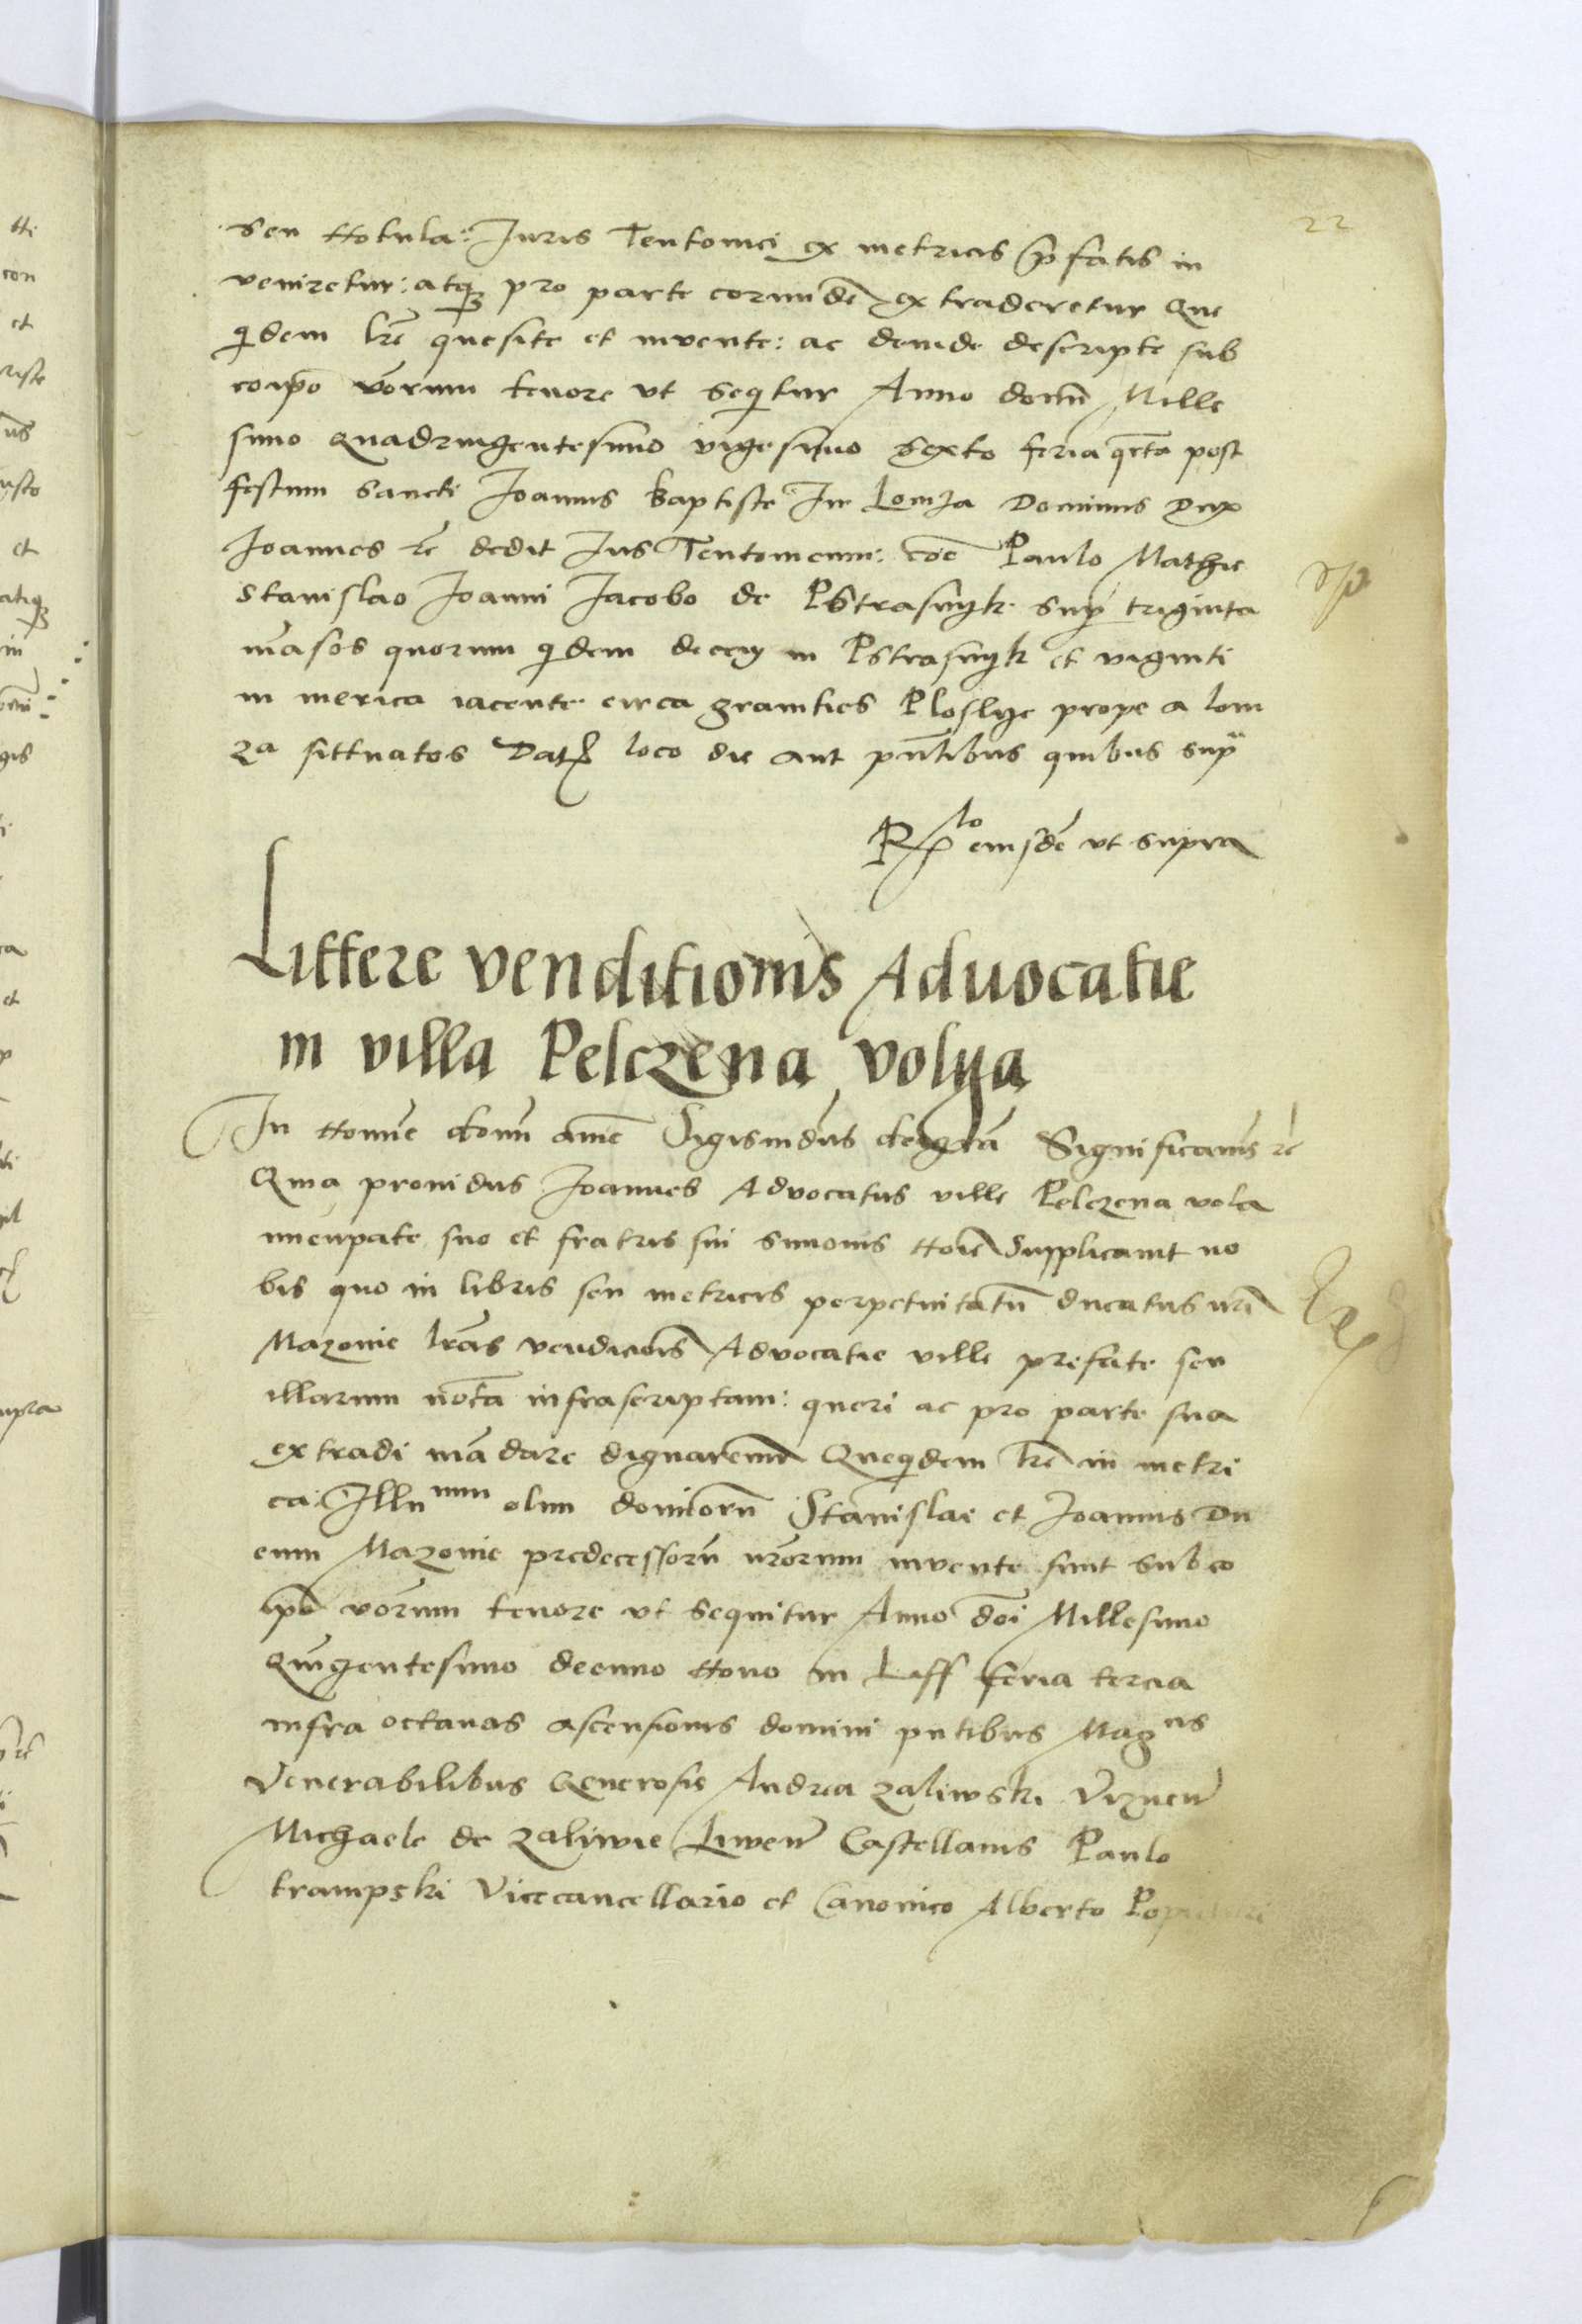 22
seu Notula: Iuris Teutonici ex metricis p̄fatis in
veniretur: atq₃ pro parte eorundē extraderetur Que
qidem lrē quesite et invente: ac deinde descripte sub
eoip̄o v̄orum tenore ut seqitur Anno domī Mille
simo Quadringentesimo vigesimo Sexto feria qrta post
festum Sancti Ioannis Baptiste In Lomza Dominus Dux
Ioannes rc̄ dedit Ius Teutonicum: Paulo Mathie
Stanislao Ioanni Iacobo de Pstrasnyk sup triginta
māsos quorum qidem decem in Pstrasnyk et viginti
in merica iacente circa granities Ploslye prope a lom
za sittuatos Dat loco die ant pn̄tibus quibus supᵃ
Rlo eiusdē ut supra
Littere venditionis Advocatie
in villa Pelczena volya
In Nomīe domī amē Sigismūdus dei gr̄a Significamꝰ rc̄
Quia providus Ioannes Advocatus ville Pelczena vola
nuncupate suo et fratris sui Simonis Noīe Supplicavit no
bis quo in libris seu metricis perpetuitatū ducatus nr̄i
Mazovie lrās vendicioīs Advocatie ville prefate seu
illarum notā infrascriptam: queri ac pro parte sua
extradi mādare dignaremur Queqidem lrē in metri
ca Illuᵐᵘᵐ olim dominorū Stanislai et Ioannis Du
cum Mazovie predecessorū nr̄orum invente sunt sub eo
ip̄o v̄orum tenore ut sequitur Anno dōi Millesimo
Quīgentesimo decimo Nono in Liff feria tercia
infra octavas ascensionis domini pn̄tibus Magᶜⁱˢ
Venerabilibus Generosis Andrea Zaliwski Viznen̄
Michaele de Zaliwie Liwen̄ Castellanis Paulo
trampski Vicecancellario et Canonico Alberto